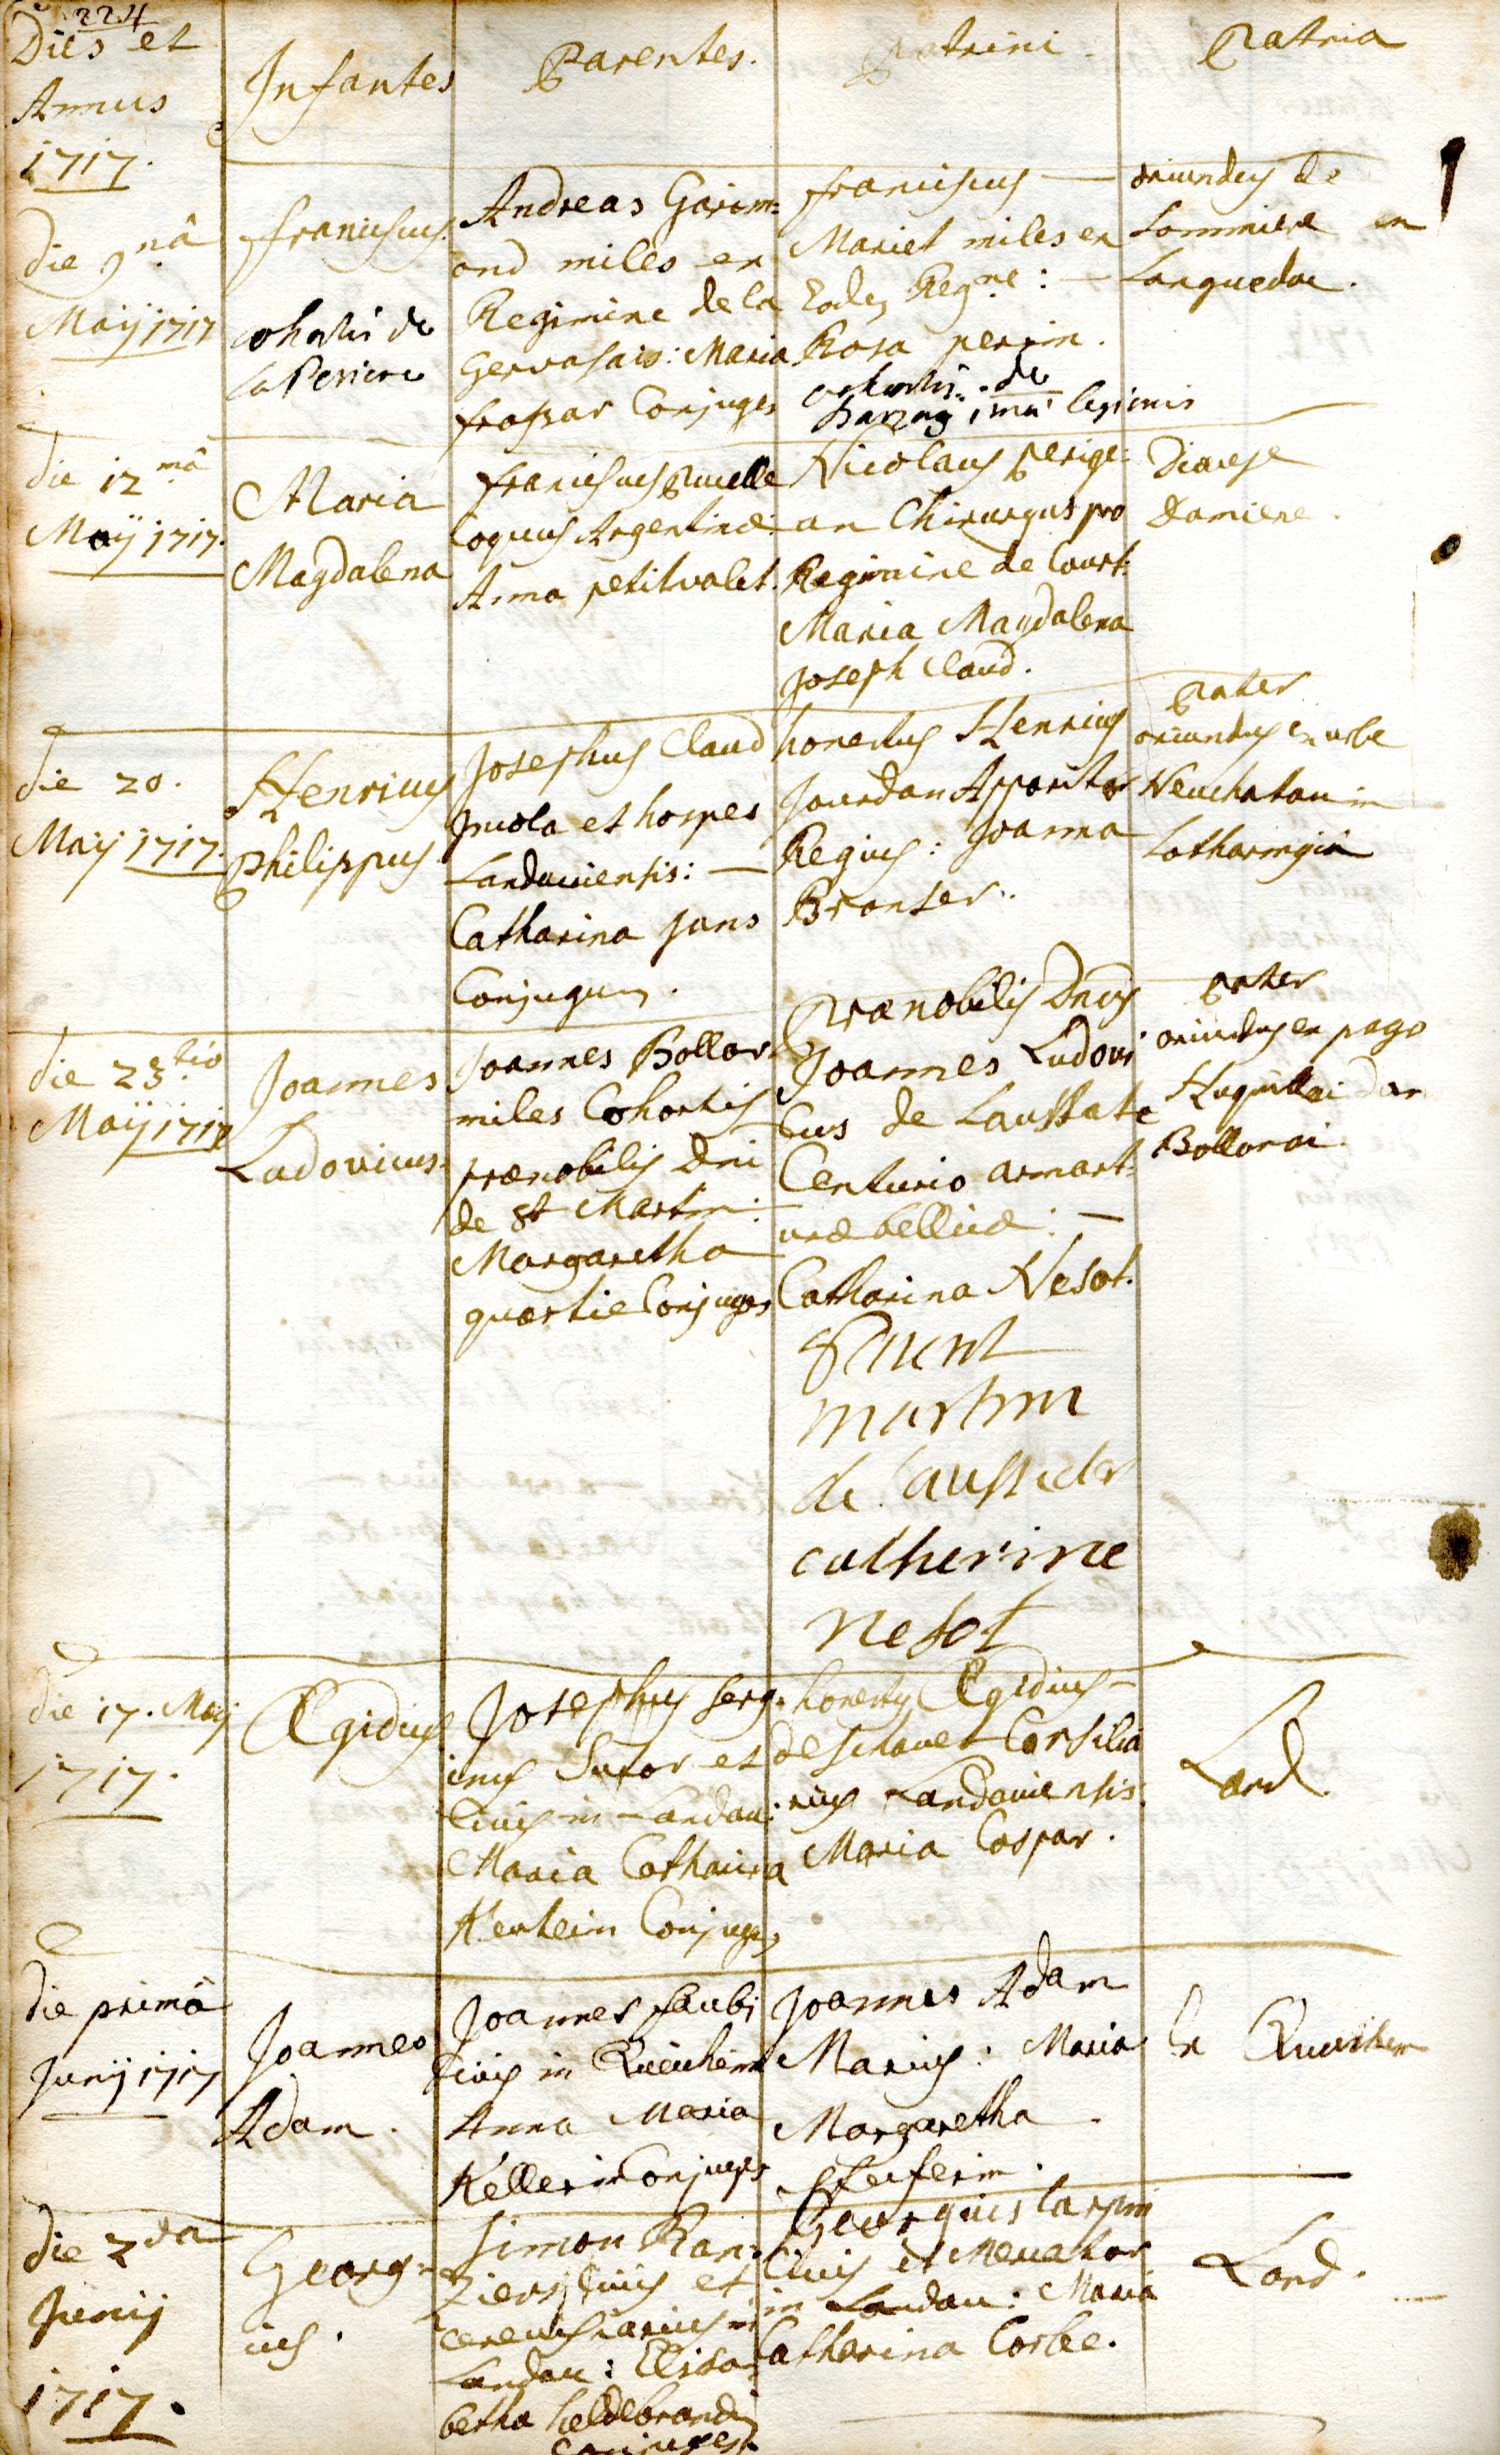 224
Dies et
Annus
1717.
Infantes
Parentes.
Patrini.
Patria
die 9nâ
Maij 1717
franciscus.
cohortis de
la Periere
Andreas Garim=
ond miles ex
Regimine de la
Gervasais: Maria
frassar Conjuges
franciscus —
Mariet miles ex
Eodem Regne: —
Rosa perrin.
cohortis de
legionis
oriundus de
Lommiere en
Languedoc.
die 12mâ
Maij 1717.
Maria
Magdalena
franciscus Pucelle
Coquus Argentinæ:
Anna petitvalet.
Nicolaus perige=
an Chirurgus pro
Regimine de Court:
Maria Magdalena
Joseph Claud.
Diœcese
Damiene.
die 20.
Maij 1717.
Henricus
Philippus
Josephus Claud
Incola et hospes
Landaviensis: —
Catharina Jans
Conjugum.
honestus Henricus
Jourdan Apparitor
Regius: Joanna
Branser.
Pater
oriundus ex urbe
Neuchatau in
Lotharingiâ
die 23tio
Maij 1717
Joannes
Ludovicus.
Joannes Bollor
miles Cohortis
prænobilis Dni
de St Martin:
Margaretha
quartie Conjuges
Prænobilis Dnus
Joannes Ludovi
Cus de Laussate
Centurio armat=
uræ bellicæ: —
Catharina Nesot.
martin
de
catherine
nesot
pater
oriundus ex pago
Bollorai.
die 17. Maij
1717.
Ægidius
Josephus Serg=
inus Sutor et
Civis in Landau:
Maria Catharina
Kerhein Conjuges
honestus Ægidius —
deschauet Consilia
rius Landaviensis:
Maria Caspar.
Land.
die primâ
Junij 1717
Joannes
Adam.
Joannes faubi
Civis in Queicheim
Anna Maria
Kellerin Conjuges
Joannes Adam
Marius: Maria
Margaretha
Pfeiferin.
in Queichem
die 2da
Junij
1717.
Georg=
ius.
Simon Ran=
ziers Civis et
cerevisiarius in
Landau: Elisa=
betha heldebrandin
Conjuges.
Georgius Carpin
Civis et Mercator
in Landau: Maria
Catherina Corbe.
Land.